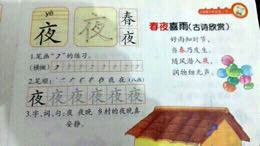 yè
夜
夜
春
夜
1.笔画"㇇"的练习。
(横撇)
2.笔顺:
夜(八画)
夜 夜 夜 夜 夜 夜
3.字、词、句:夜 夜晚 乡村的夜晚真
安静。
春夜喜雨(古诗欣赏)
好雨知时节,
当春乃发生。
随风潜入夜,
润物细无声。